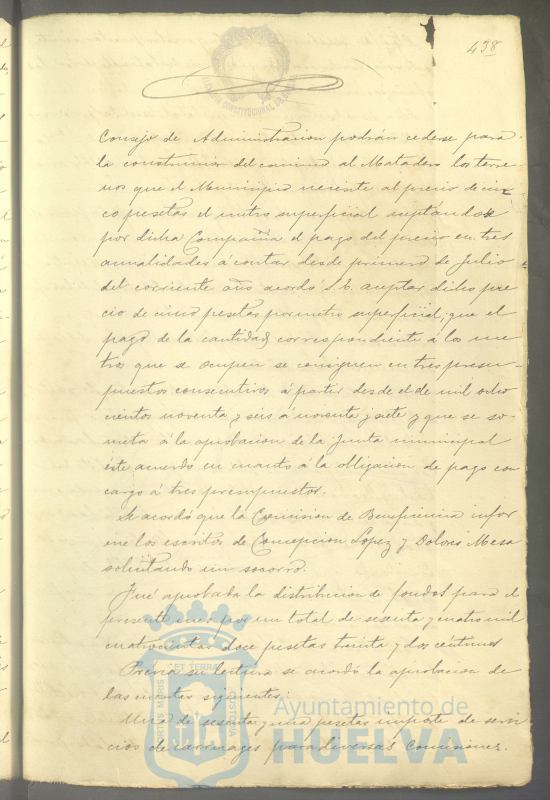 438
Consejo de Administracion podrán cederse para
la construccion del camino al Matadero los terre-
nos que el Municipio necesite al precio de cin-
co pesetas el metro superficial aceptandose
por dicha Compañia el pago del precio en tres
anualidades á contar desde primero de Julio
del corriente año acordó S. E. aceptar dicho pre
cio de cinco pesetas por metro superficial; que el
pago de la cantidad correspondiente á los me-
tros que se ocupen se consignen en tres presu-
puestos consecutivos á partir desde el de mil ocho
cientos noventa y seis á noventa y siete y que se so-
meta á la aprobacion de la Junta municipal
este acuerdo en cuanto á la obligacion de pago con
cargo á tres presupuestos.
Se acordó que la Comision de Beneficencia infor
me los escritos de Concepcion Lopez y Dolores Mesa
solicitando un socorro.
Fué aprobada la distribucion de fondos para el
presente mes por un total de sesenta y cuatro mil
cuatrocientas doce pesetas treinta y dos céntimos
Previa su lectura se acordó la aprobacion de
las cuentas siguientes:
Una de sesenta y una pesetas importe de servi
cios de carruages para diversas Comisiones.
PORTUS MARIS ET TERRAE CUSTODIA
Ayuntamiento de
HUELVA